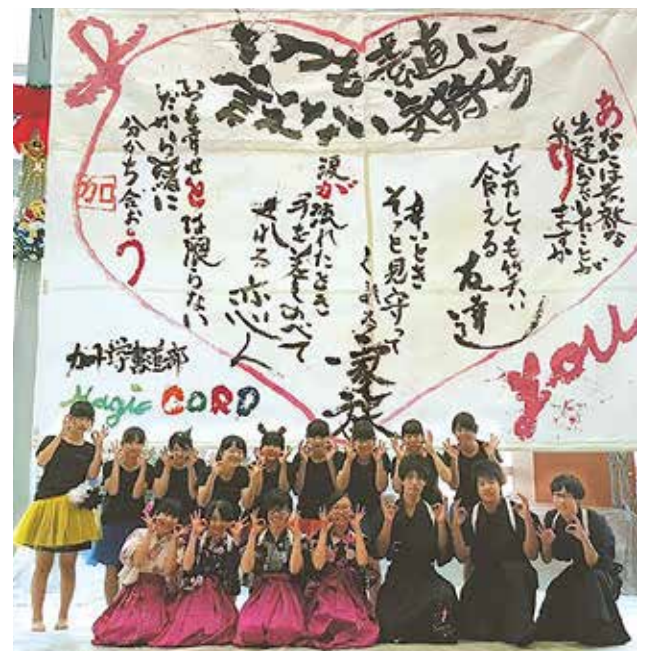 いつも素直に
言えない気持ち
あなたは素敵な
出逢いをしたことが
ありますか
ケンカしても笑い
合える 友達
辛いとき
そっと見守って
くれる 家族
涙が流れたとき
手を差しのべて
くれる 恋人
いつも幸せとは限らない
だから一緒に
分かち合おう
加
書道部
Magic CORD
you